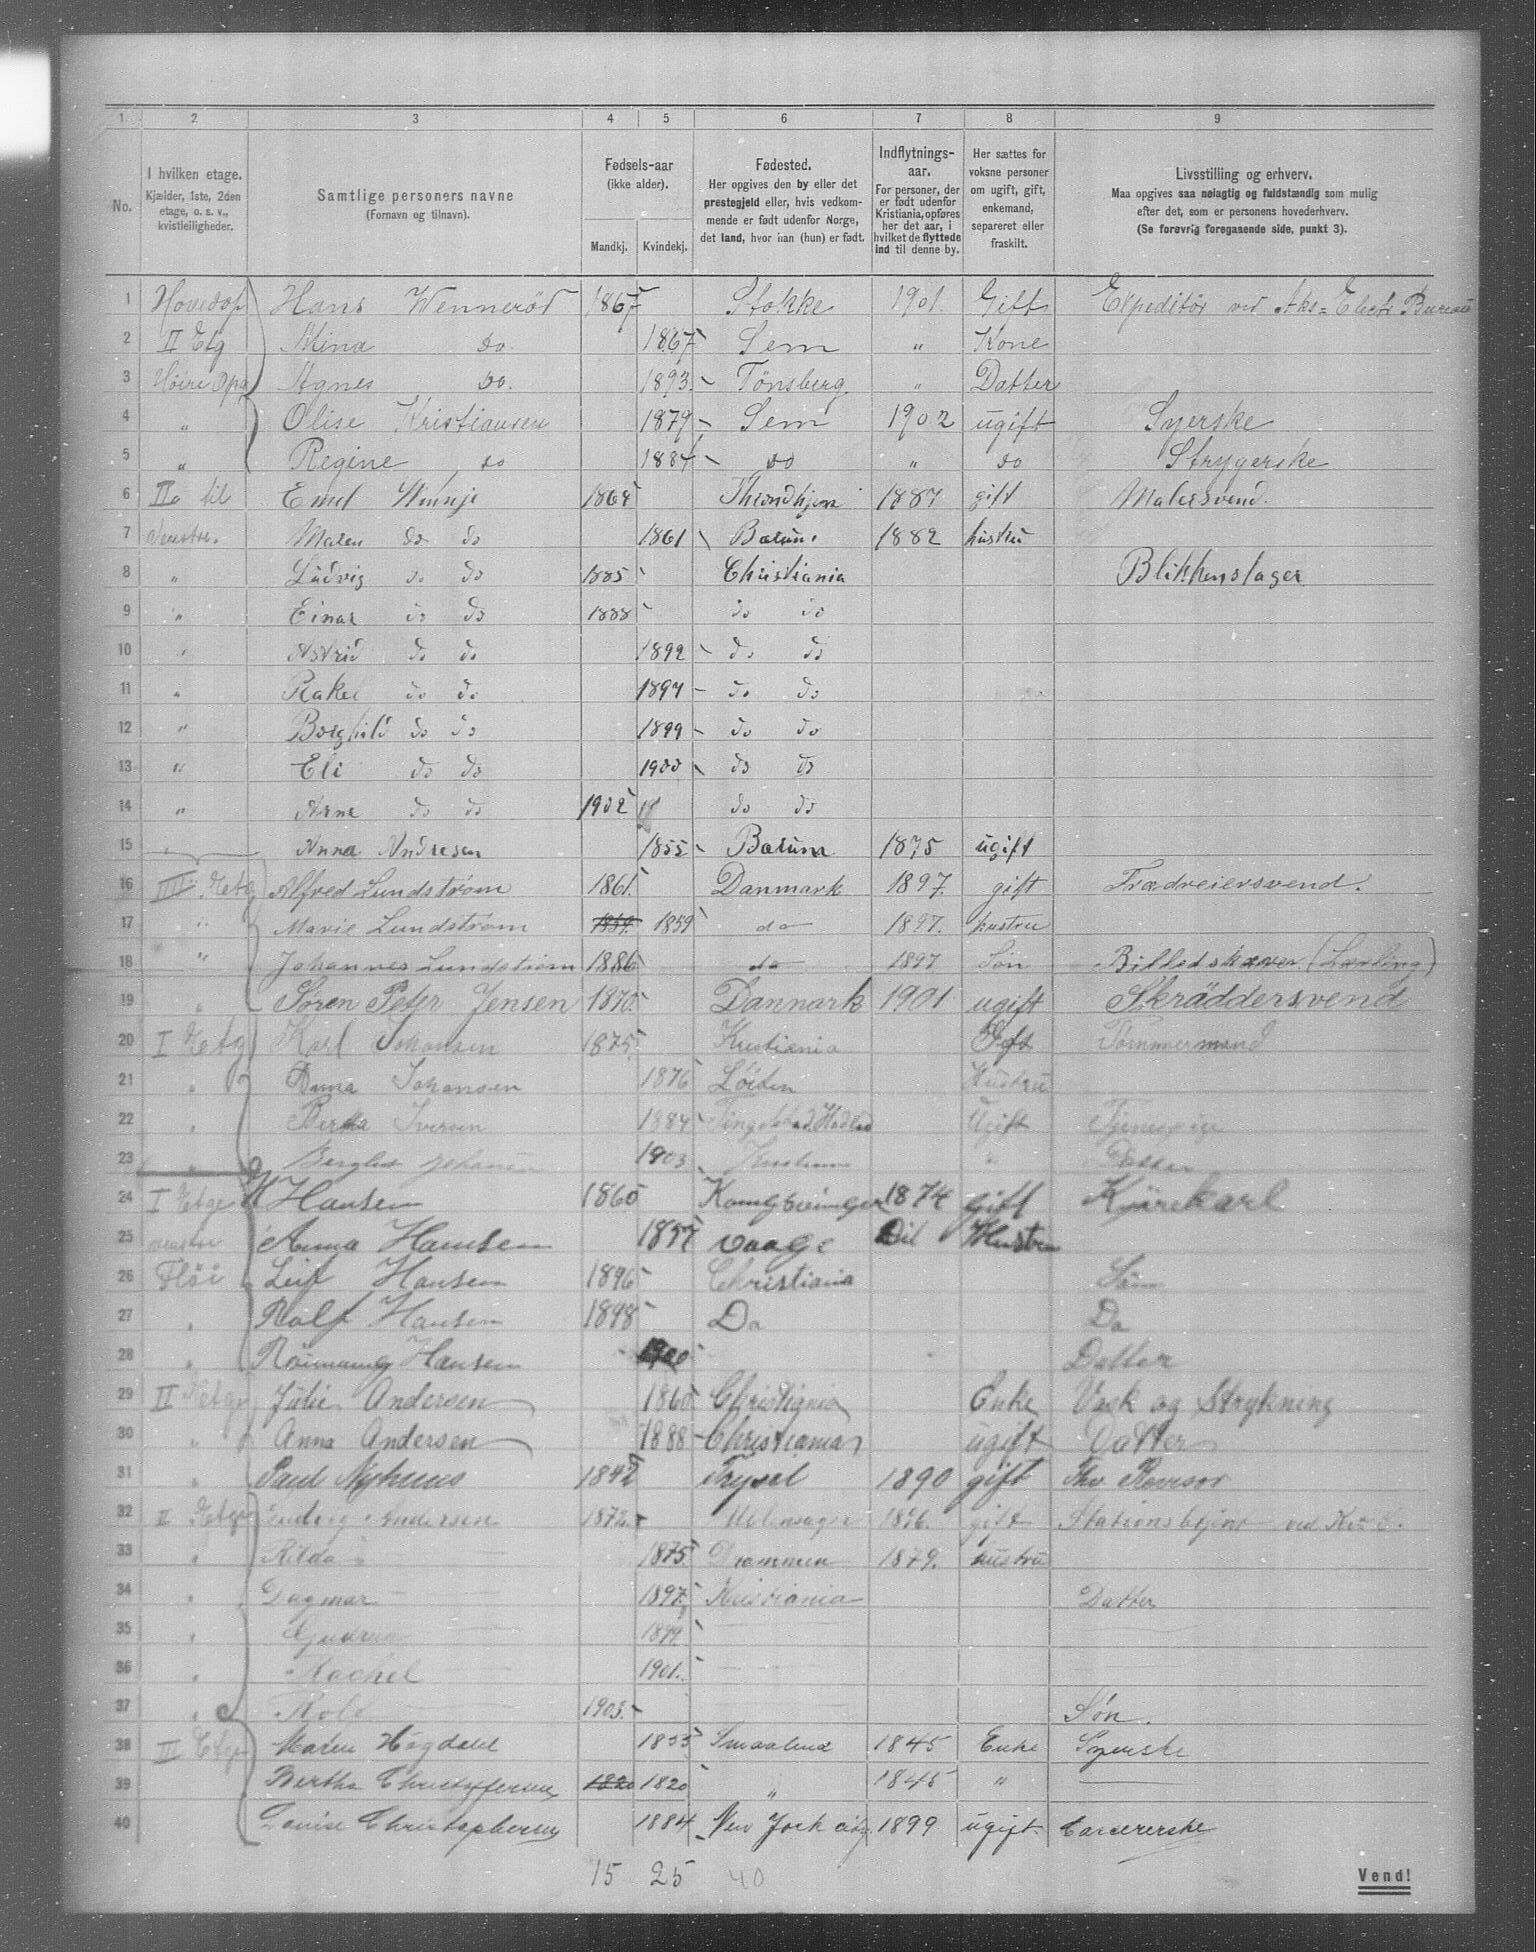 1 2 3 4 5 6 7 8 9
No.
I hvilken etage.
Kjælder, 1ste, 2den
etage, o. s. v.,
kvistleiligheder.
Samtlige personers navne
(Fornavn og tilnavn).
Fødsels-aar
(ikke alder).
Mandkj. Kvindekj.
Fødested.
Her opgives den by eller det
prestegjeld eller, hvis vedkom-
mende er født udenfor Norge,
det land, hvor han (hun) er født.
Indflytnings-
aar.
For personer, der
er født udenfor
Kristiania, opføres
her det aar, i
hvilket de flyttede
ind til denne by.
Her sættes for
voksne personer
om ugift, gift,
enkemand,
separeret eller
fraskilt.
Livsstilling og erhverv.
Maa opgives saa nøiagtig og fuldstændig som mulig
efter det, som er personens hovederhverv.
(Se forøvrig foregaaende side, punkt 3).
1 Hovedop Hans Wennerød 1867 Stokke 1901 Gift Expeditør ved Aks= Elect Bureau
2 II Etg Mina do 1867 Sem " Kone
3 Høire Opg Agnes do. 1893 Tönsberg " Datter
4 " Olise Kristiansen 1879 Sem 1902 ugift Syerske
5 " Regine do 1884 do " do Strygerske
6 II til Emil Winnje 186 Throndhjem 1887 gift Malersvend.
7 Venstre. Maren do do 1861 Bærum. 1882 hustru
8 " Ludvig do do 1885 Christiania Blikkenslager
9 " Einar do do 1888 do do
10 " Astrid do do 1892 do do
11 " Rakel do do 1897 do do
12 " Borghild do do 1899 do do
13 " Eli do do 1900 do do
14 " Arne do do 1902 do do
15 Anna Andresen 1855 Bærum 1875 ugift
16 III Etg Alfred Lundstrøm 1861 Danmark 1897. gift Trædreiersvend.
17 " Marie Lundstrøm 1859 1859 do 1897. hustru
18 " Johannes Lundstrøm 1886 do 1897 Søn Billedskærer (Lærling)
19 " Sören Peter Jensen 1870 Danmark 1901 ugift Skräddersvend
20 I Etg Karl Johansen 1875 Kristiania Gift Tømmermand
21 " Anna Johansen 1876 Löiten Hustru
22 " Berta Iversen 1884 Ugift Tjenepige
23 " Johansen 1903 " Datter
24 I Etge Hansen 1860 1874 gift Kjørekarl
25 venstre Anna Hansen 1857 Vaage Dil Hustru
26 Fløi Leif Hansen 1896 Christiania Sön
27 " Rolf Hansen 1898 Do Do
28 " Hansen 1900 Datter
29 II Etge Julie Andersen 1860 Christiania Enke Vask og Strykning
30 " Anna Andersen 1888 Christiania ugift Datter
31 " Paul Nyhuus 1842 Trysil 1890 gift
32 II Etge Ludvig Andersen 1872 1876. gift Stationsbetjent ved
33 " Hilda 1875 Drammen 1879. hustru
34 " Dagmar 1897 Kristiania Datter
35 " Gudrun 1899
36 " Rachel 1901.
37 " Rolf 1903. Søn.
38 II Etge Maren Högdahl 1833 Smaalene 1845 Enke Syerske
39 Bertha Christoffersen 1820 1820 " 1845 "
40 Lovise Christophersen 1884 New York 1899 ugift
15 25 40
Vend!